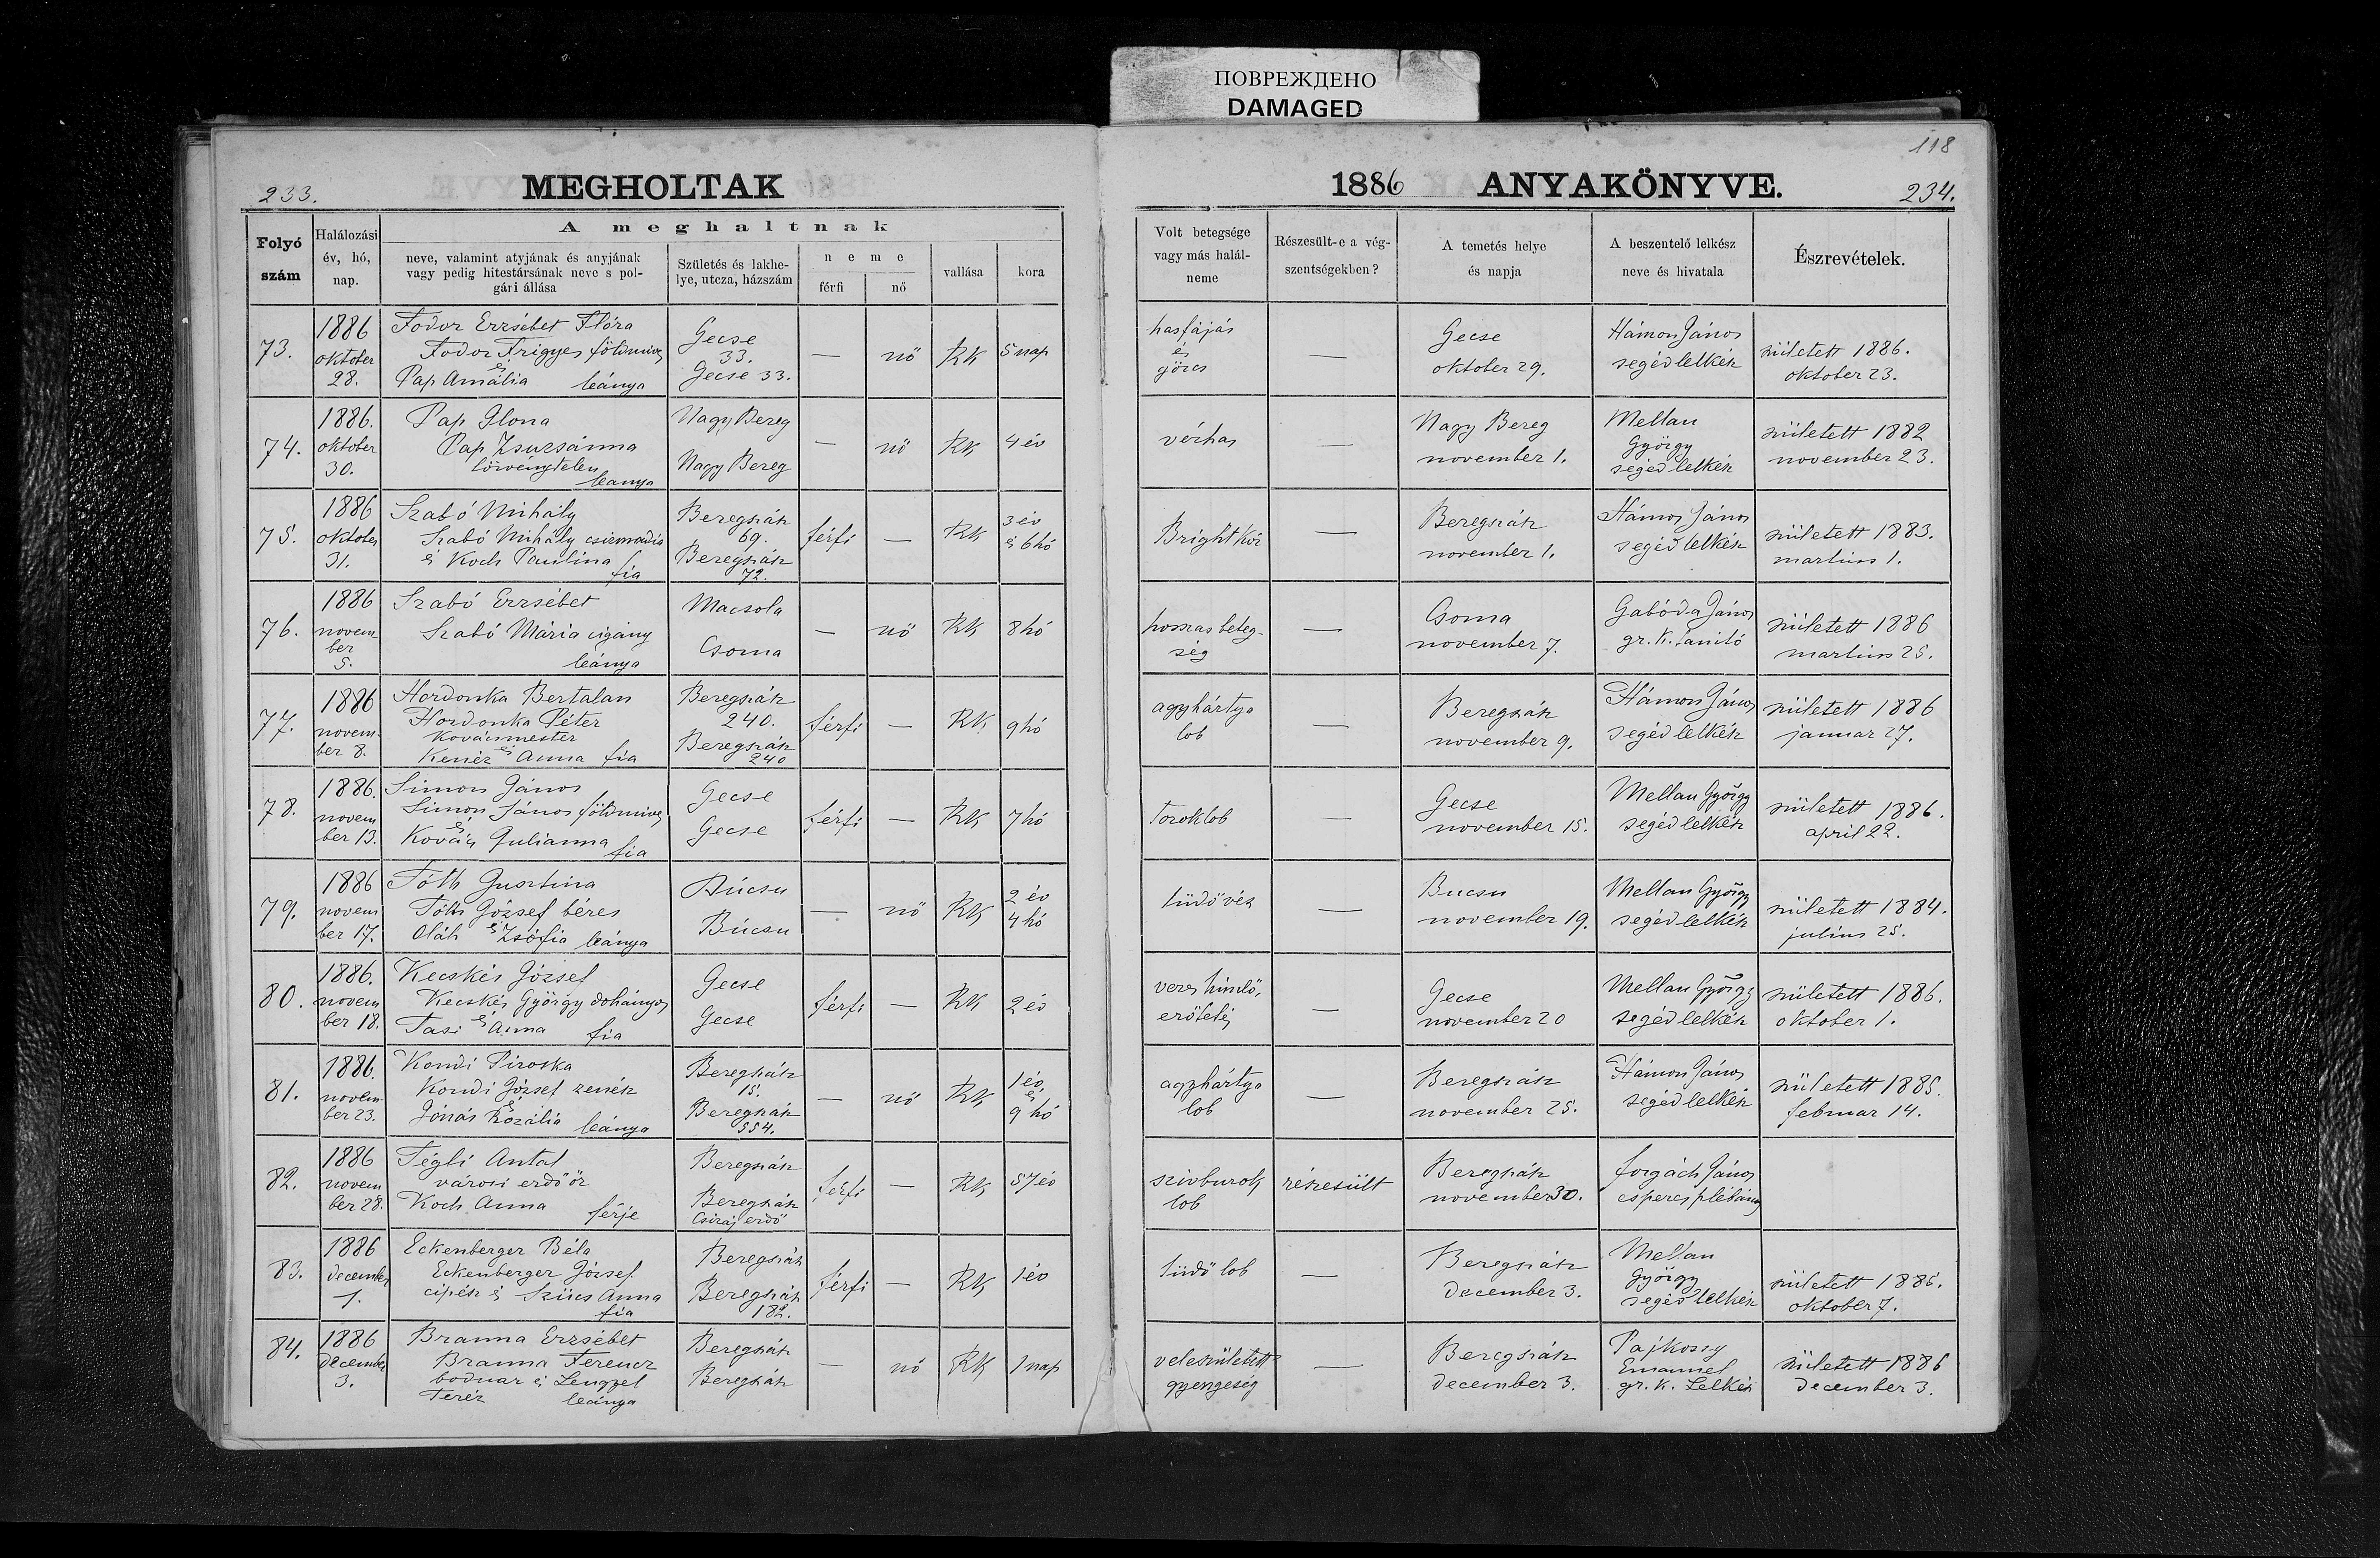 ПОВРЕЖДЕНО
DAMAGED
118
233.
MEGHOLTAK
1886 ANYAKÖNYVE.
234.
Folyó szám
Halálozási év, hó, nap.
A meghaltnak
neve, valamint atyjának és anyjának
vagy pedig hitestársának neve s pol-
gári állása
Születés és lakhe-
lye, utcza, házszám
neme
férfi
nő
vallása
kora
Volt betegsége
vagy más halál-
neme
Részesült-e a vég-
szentségekben?
A temetés helye
és napja
A beszentelő lelkész
neve és hivatala
Észrevételek.
73.
1886
oktober
28.
Fodor Erzsébet Flóra
Fodor Frigyes földmives
és
Pap Amália leánya
Gecse
33.
Gecse 33.
—
nö
RK
5 nap
hasfájás
és
görcs
—
Gecse
oktober 29.
Hámos János
segéd lelkész
született 1886.
oktober 23.
74.
1886.
oktober
30.
Pap Ilona
Pap Zsuzsánna
törvénytelen
leanya
Nagy Bereg
Nagy Bereg
—
nö
RK
4 év
vérhas
—
Nagy Bereg
november 1.
Mellan
György
segéd lelkész
született 1882
november 23.
75.
1886
oktober
31.
Szabó Mihály
Szabó Mihály csizmadia
és Koch Paulina
fia
Beregszász
69.
Beregszász
72.
férfi
—
RK
3 év
és 6 hó
Bright kór
—
Beregszász
november 1.
Hámos János
segéd lelkész
született 1883.
martius 1.
76.
1886
novem
ber
5.
Szabó Erzsébet
Szabó Mária cigány
leánya
Macsola
Csoma
—
nö
RK
8 hó
hosszas beteg-
ség
—
Csoma
november 7.
Gabóda János
gr. k. tanitó
született 1886
martius 25.
77.
1886
novem-
ber 8.
Hordonka Bertalan
Hordonka Péter
kovácsmester
és
Kenéz Anna fia
Beregszász
240.
Beregszász
240
férfi
—
RK
9 hó
agyhártya
lob
—
Beregszász
november 9.
Hámos János
segéd lelkész
született 1886
januar 27.
78.
1886.
novem
ber 13.
Simon János
Simon János földmives
és
Kovács Julianna
fia
Gecse
Gecse
férfi
—
RK
7 hó
Toroklob
—
Gecse
november 15.
Mellan György
segéd lelkész
született 1886.
april 22.
79.
1886
novem
ber 17.
Tóth Jusztina
Tóth József béres
és
Oláh Zsófia leánya
Búcsu
Búcsu
—
nö
RK
2 év
4 hó
tüdővész
—
Bucsu
november 19.
Mellan György
segéd lelkész
született 1884.
julius 25.
80.
1886.
novem
ber 18.
Kecskés József
Kecskés György dohányos
és
Tasi Anna fia
Gecse
Gecse
férfi
—
RK
2 év
veres himlő,
erőtetés
—
Gecse
november 20
Mellan György
segéd lelkész
született 1886.
oktober 1.
81.
1886.
novem
ber 23.
Kondi Piroska
Kondi József zenész
és
Jónás Rózália leánya
Beregszász
15.
Beregszász
554.
—
nö
RK
1 év
és
9 hó
agyhártya
lob
—
Beregszász
november 25.
Hámos János
segéd lelkész
született 1885.
februar 14.
82.
1886
novem
ber 28.
Tégli Antal
városi erdőőr
Koch Anna férje
Beregszász
Beregszász
erdő
férfi
—
RK
57 év
szivburok
lob
részesült
Beregszász
november 30.
forgách János
esperes plébános
83.
1886
december
1.
Eckenberger Béla
Eckenberger József
cipész és Szücs Anna
fia
Beregszász
Beregszász
182.
férfi
—
RK
1 év
tüdő lob
—
Beregszász
december 3.
Mellan
György
segéd lelkész
született 1885.
oktober 7.
84.
1886
december
3.
Branna Erzsébet
Branna Ferencz
bodnar és Lengyel
Teréz leánya
Beregszász
Beregszász
—
nö
RK
1 nap
veleszületett
gyengeség
—
Beregszász
december 3.
Pajkossy
Emanuel
gr. k. Lelkész
született 1886
december 3.